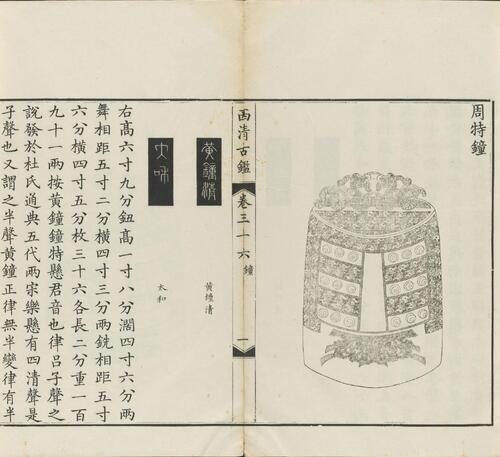 周特鐘
西清古鑑 卷三十六 鐘 一
黃鐘清
黃鐘清
大和
太和
右高六寸九分鈕高一寸八分濶四寸六分兩
舞相距五寸二分橫四寸三分兩銑相距五寸
六分橫四寸五分枚三十六各長二分重一百
九十一兩按黃鐘鐘特懸君音也律呂子聲之
說發於杜氏通典五代兩宋樂懸有四清聲是
子聲也又謂之半聲黃鐘正律無半變律有半